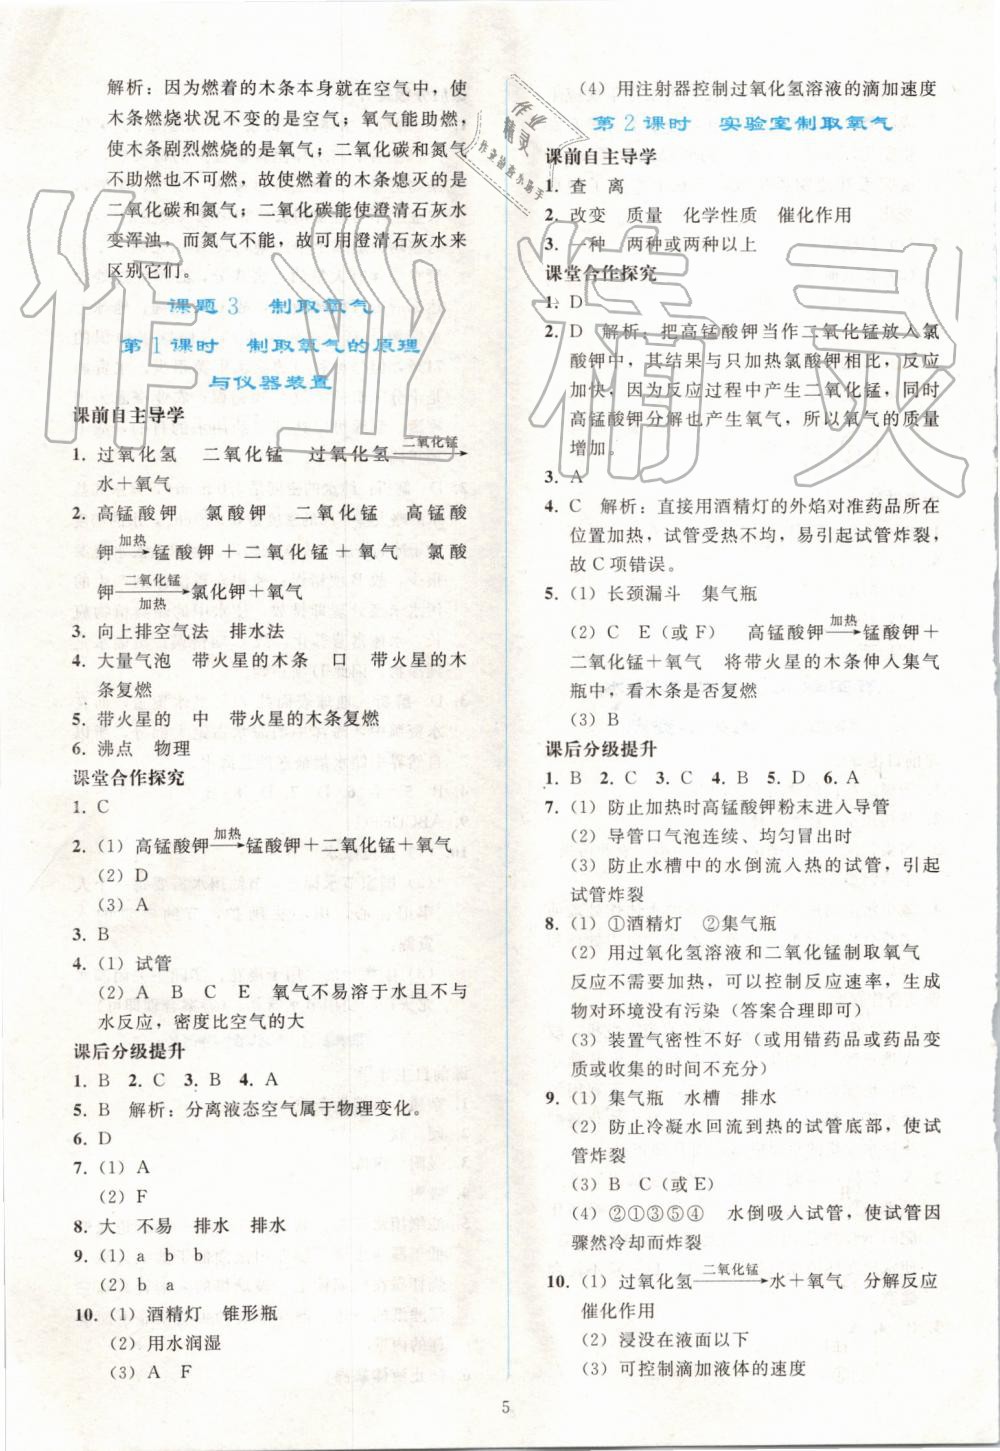 解析：因为燃着的木条本身就在空气中，使
木条燃烧状况不变的是空气；氧气能助燃，
使木条剧烈燃烧的是氧气；二氧化碳和氮气
不助燃也不可燃，故使燃着的木条熄灭的是
二氧化碳和氮气；二氧化碳能使澄清石灰水
变浑浊，而氮气不能，故可用澄清石灰水来
区别它们。
课题3 制取氧气
第1课时 制取氧气的原理
与仪器装置
课前自主导学
1. 过氧化氢 二氧化锰 过氧化氢 二氧化锰→
水＋氧气
2. 高锰酸钾 氯酸钾 二氧化锰 高锰酸
钾 加热→ 锰酸钾＋二氧化锰＋氧气 氯酸
钾 二氧化锰 加热→ 氯化钾＋氧气
3. 向上排空气法 排水法
4. 大量气泡 带火星的木条 口 带火星的木
条复燃
5. 带火星的 中 带火星的木条复燃
6. 沸点 物理
课堂合作探究
1. C
2. (1) 高锰酸钾 加热→ 锰酸钾＋二氧化锰＋氧气
(2) D
(3) A
3. B
4. (1) 试管
(2) A B C E 氧气不易溶于水且不与
水反应，密度比空气的大
课后分级提升
1. B 2. C 3. B 4. A
5. B 解析：分离液态空气属于物理变化。
6. D
7. (1) A
(2) F
8. 大 不易 排水 排水
9. (1) a b b
(2) b a
10. (1) 酒精灯 锥形瓶
(2) 用水润湿
(3) A F
(4) 用注射器控制过氧化氢溶液的滴加速度
第2课时 实验室制取氧气
课前自主导学
1. 查 离
2. 改变 质量 化学性质 催化作用
3. 一种 两种或两种以上
课堂合作探究
1. D
2. D 解析：把高锰酸钾当作二氧化锰放入氯
酸钾中，其结果与只加热氯酸钾相比，反应
加快，因为反应过程中产生二氧化锰，同时
高锰酸钾分解也产生氧气，所以氧气的质量
增加。
3. A
4. C 解析：直接用酒精灯的外焰对准药品所在
位置加热，试管受热不均，易引起试管炸裂，
故C项错误。
5. (1) 长颈漏斗 集气瓶
(2) C E（或F） 高锰酸钾 加热→ 锰酸钾＋
二氧化锰＋氧气 将带火星的木条伸入集气
瓶中，看木条是否复燃
(3) B
课后分级提升
1. B 2. C 3. C 4. B 5. D 6. A
7. (1) 防止加热时高锰酸钾粉末进入导管
(2) 导管口气泡连续、均匀冒出时
(3) 防止水槽中的水倒流入热的试管，引起
试管炸裂
8. (1) ①酒精灯 ②集气瓶
(2) 用过氧化氢溶液和二氧化锰制取氧气
反应不需要加热，可以控制反应速率，生成
物对环境没有污染（答案合理即可）
(3) 装置气密性不好（或用错药品或药品变
质或收集的时间不充分）
9. (1) 集气瓶 水槽 排水
(2) 防止冷凝水回流到热的试管底部，使试
管炸裂
(3) B C（或E）
(4) ②①③⑤④ 水倒吸入试管，使试管因
骤然冷却而炸裂
10. (1) 过氧化氢 二氧化锰→ 水＋氧气 分解反应
催化作用
(2) 浸没在液面以下
(3) 可控制滴加液体的速度
5
作业精灵
作业
精灵